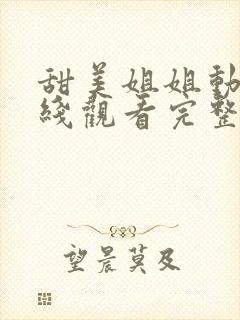 甜美姐姐動
綫觀看完整
望晨莫及